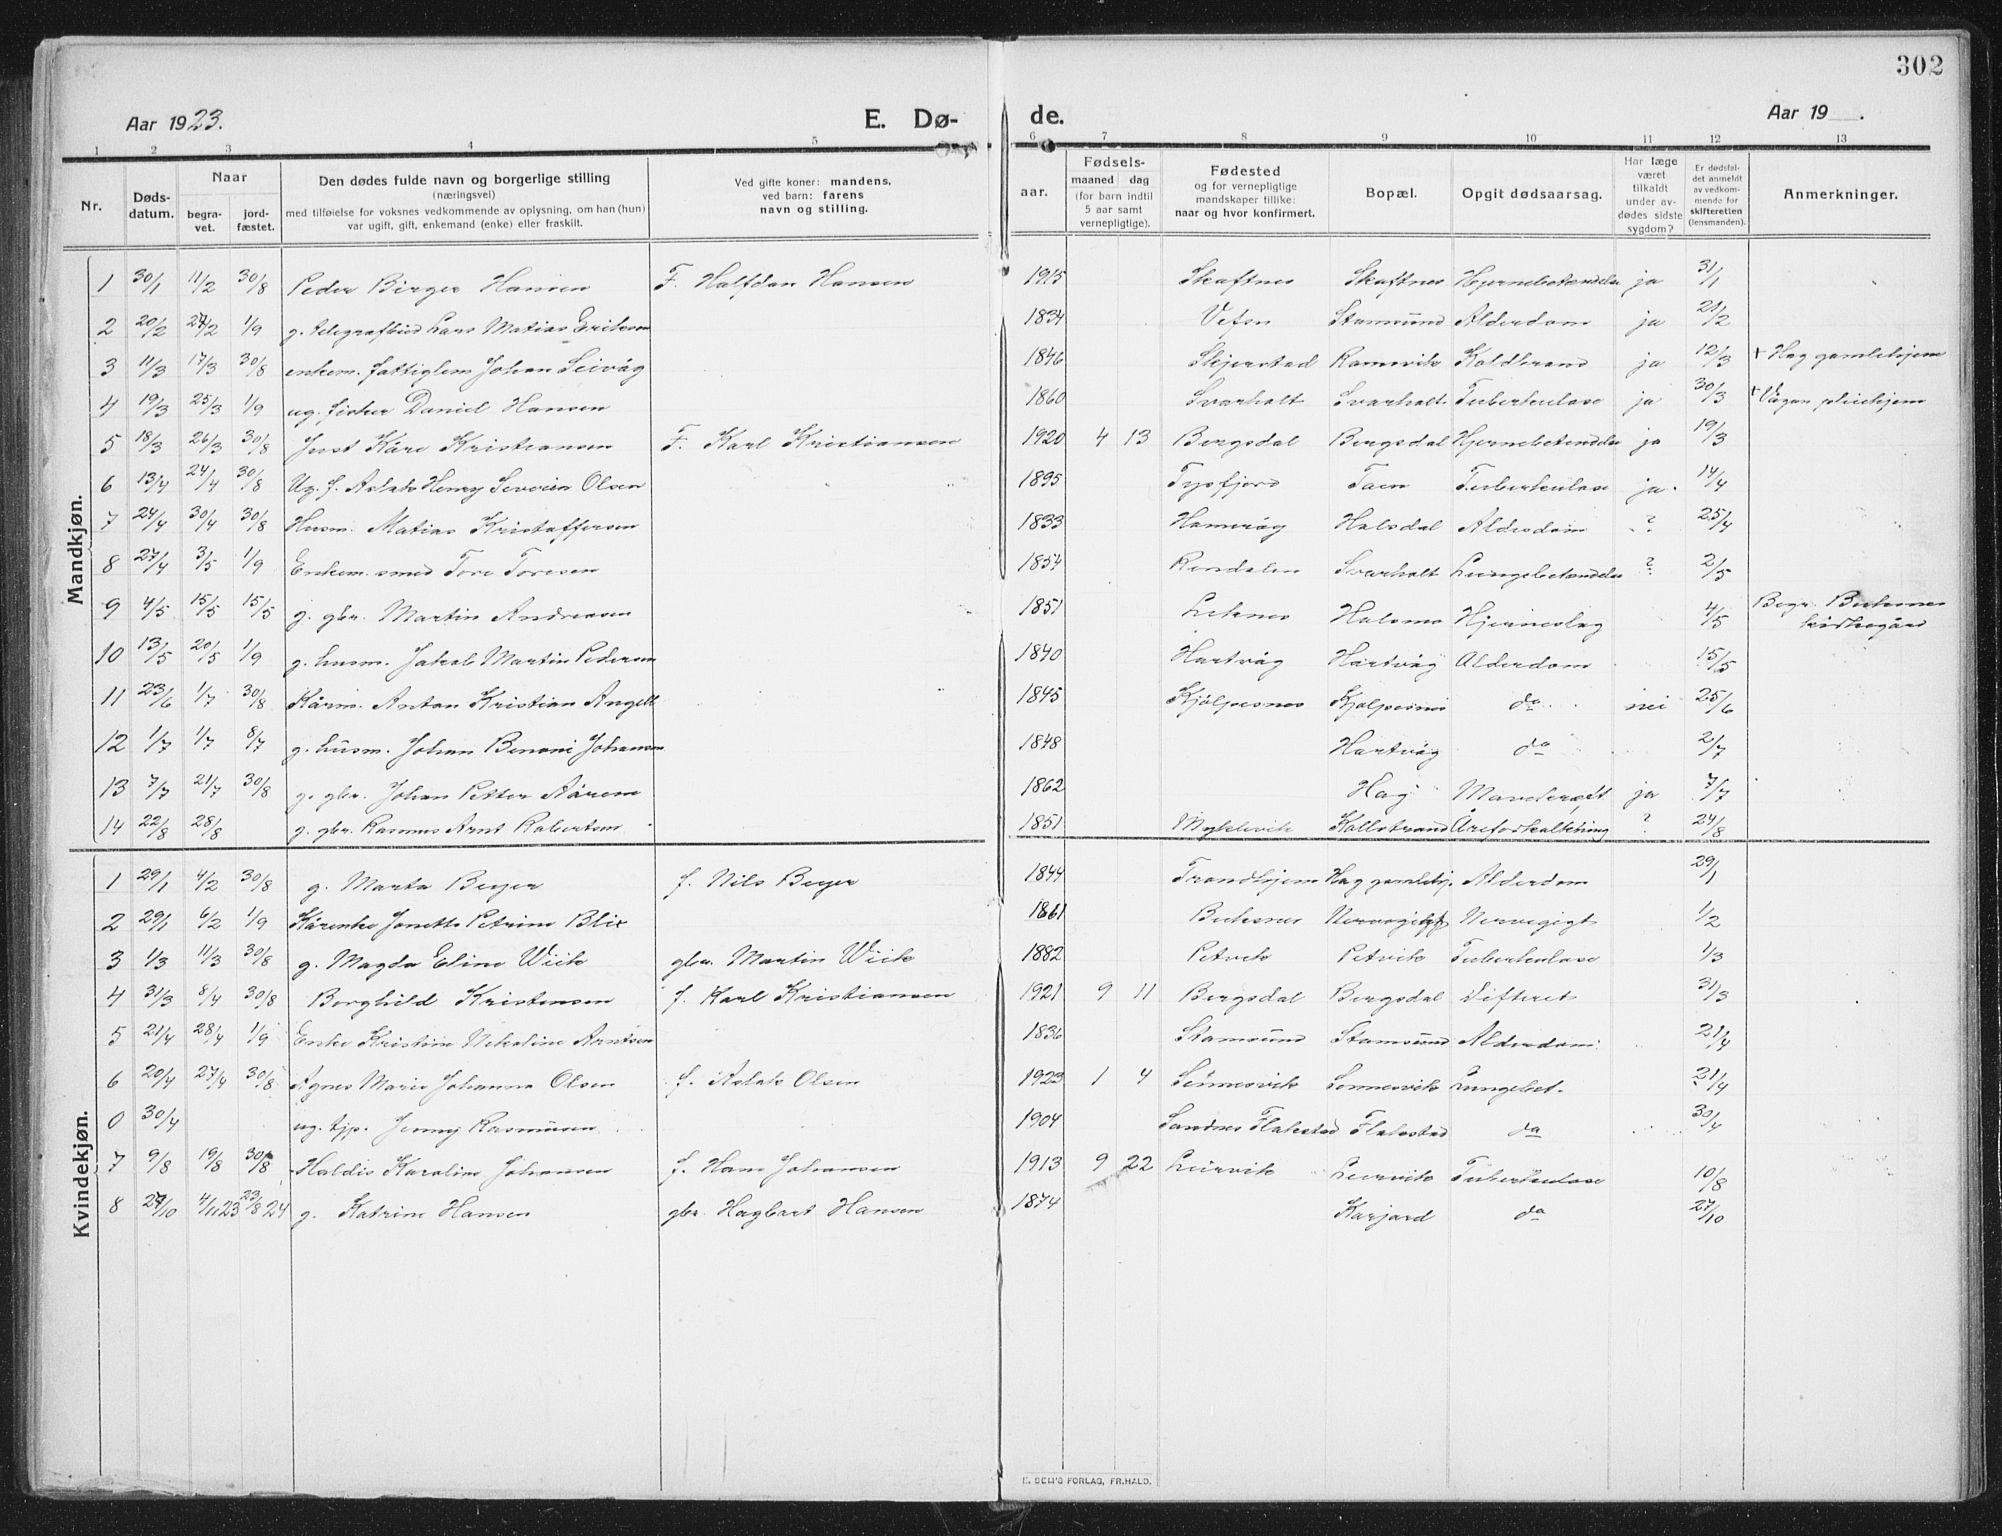 302
Aar 1923.
E. Dø-
de.
Aar 19 .
1 2 3 4 5 6 7 8 9 10 11 12 13
Nr.
Døds-
datum.
Naar
begra-
vet.
jord-
fæstet.
Den dødes fulde navn og borgerlige stilling
(næringsvei)
med tilføielse for voksnes vedkommende av oplysning, om han (hun)
var ugift, gift, enkemand (enke) eller fraskilt.
Ved gifte koner: mandens,
ved barn: farens
navn og stilling.
aar.
Fødsels-
maaned dag
(for barn indtil
5 aar samt
vernepligtige).
Fødested
og for vernepligtige
mandskaper tillike:
naar og hvor konfirmert.
Bopæl.
Opgit dødsaarsag.
Har læge
været
tilkaldt
under av-
dødes sidste
sygdom?
Er dødsfal-
det anmeldt
av vedkom-
mende for
skifteretten
(lensmanden).
Anmerkninger.
Mandkjøn.
1 30/1 11/2 30/8 Peder Birger Hansen F. Halfdan Hansen 1915 Skaftnes Skaftnes Hjernebetændelse ja 31/1
2 20/2 27/2 1/9 g. telegrafbud Lars Matias Eriksen 1834 Vefsn Stamsund Alderdom ja 21/2
3 11/3 17/3 30/8 enkem. fattiglem Johan Seivåg 1846 Skjerstad Ramsvik Koldbrand ja 12/3 + Hag gamlehjem
4 19/3 25/3 1/9 ug. fisker Daniel Hansen 1860 Svarholt Svarholt Tuberkulose ja 30/3 + Vågan pleiehjem
5 18/3 26/3 30/8 Just Kåre Kristiansen F. Karl Kristiansen 1920 4 13 Bergsdal Bergsdal Hjernebetændelse ja 19/3
6 13/4 24/4 30/8 Ug. f. Aslak Henry Severin Olsen 1895 Tysfjord Taen Tuberkulose ja. 14/4
7 24/4 30/4 30/8 Husm. Matias Kristoffersen 1833 Hamarøy Halsdal Alderdom ? 25/4
8 27/4 3/5 1/9 Enkem. smed Tore Toresen 1854 Rendalen Svarholt Lungebetændelse ? 2/5
9 4/5 15/5 15/5 g. gbr. Martin Andreasen 1851 Leknes Holsmo Hjerneslag 4/5 Begr. Buksnes
kirkegård
10 13/5 20/5 1/9 g. husm. Jakob Martin Pedersen 1840 Hartvåg Hartvåg Alderdom 15/5
11 23/6 1/7 30/8 Kårm. Anton Kristian Angell 1845 Kjølpesnes Kjølpesnes do nei 25/6
12 1/7 1/7 8/7 g. husm. Johan Benoni Johansen 1848 Hartvåg do 2/7
13 7/7 21/7 30/8 g. gbr. Johan Petter Aårem 1862 Hag ja 7/7
14 22/8 28/8 g. gbr. Rasmus Arnt Robertsen 1851 Myklevik Kallstrand Åreforkalkning ? 24/8
Kvindekjøn.
1 29/1 4/2 30/8 g. Marta Beyer f. Nils Beyer 1844 Trondhjem Hag gamlehj. Alderdom 29/1
2 29/1 6/2 1/9 Kårenke Janette Petrine Blix 1861 Buksnes Nervegigt 1/2
3 1/3 11/3 30/8 g. Magda Eline Wiik gbr. Martin Wiik 1882 Petvik Petvik Tuberkulose 1/3
4 31/3 8/4 30/8 Borghild Kristensen f. Karl Kristiansen 1921 9 11 Bergsdal Bergsdal Difteret 31/3
5 21/4 28/4 1/9 Enke Kristine Nikoline Arntsen 1836 Stamsund Stamsund Alderdom 21/4
6 20/4 27/4 30/8 Agnes Marie Johanna Olsen f. Aslak Olsen 1923 1 4 Sennesvik Sennesvik Lungebet. 21/4
0 30/4 ug. tjp. Jenny Rasmusen 1904 Sandnes Flakstad Flakstad do 30/4
7 9/8 19/8 30/8 Haldis Karoline Johansen f. Hans Johansen 1913 9 22 Leirvik Leirvik Tuberkulose 10/8
8 27/10 4/11 23 23/8 24 g. Katrine Hansen gbr. Hagbart Hansen 1874 Karjord do 27/10
E. SEM'S FORLAG, FR.HALD.